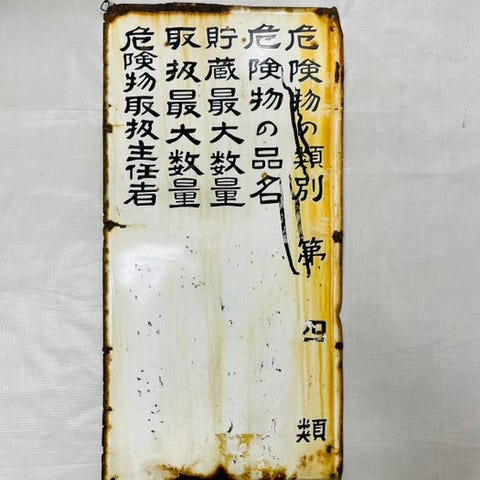 危険物の類別 第四類
危険物の品名
貯蔵最大数量
取扱最大数量
危険物取扱主任者